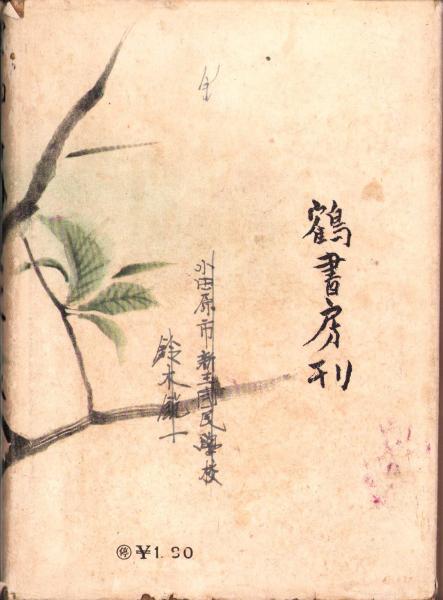 鶴書房刊
小田原市新玉國民學校
鈴木
停 ¥1.80